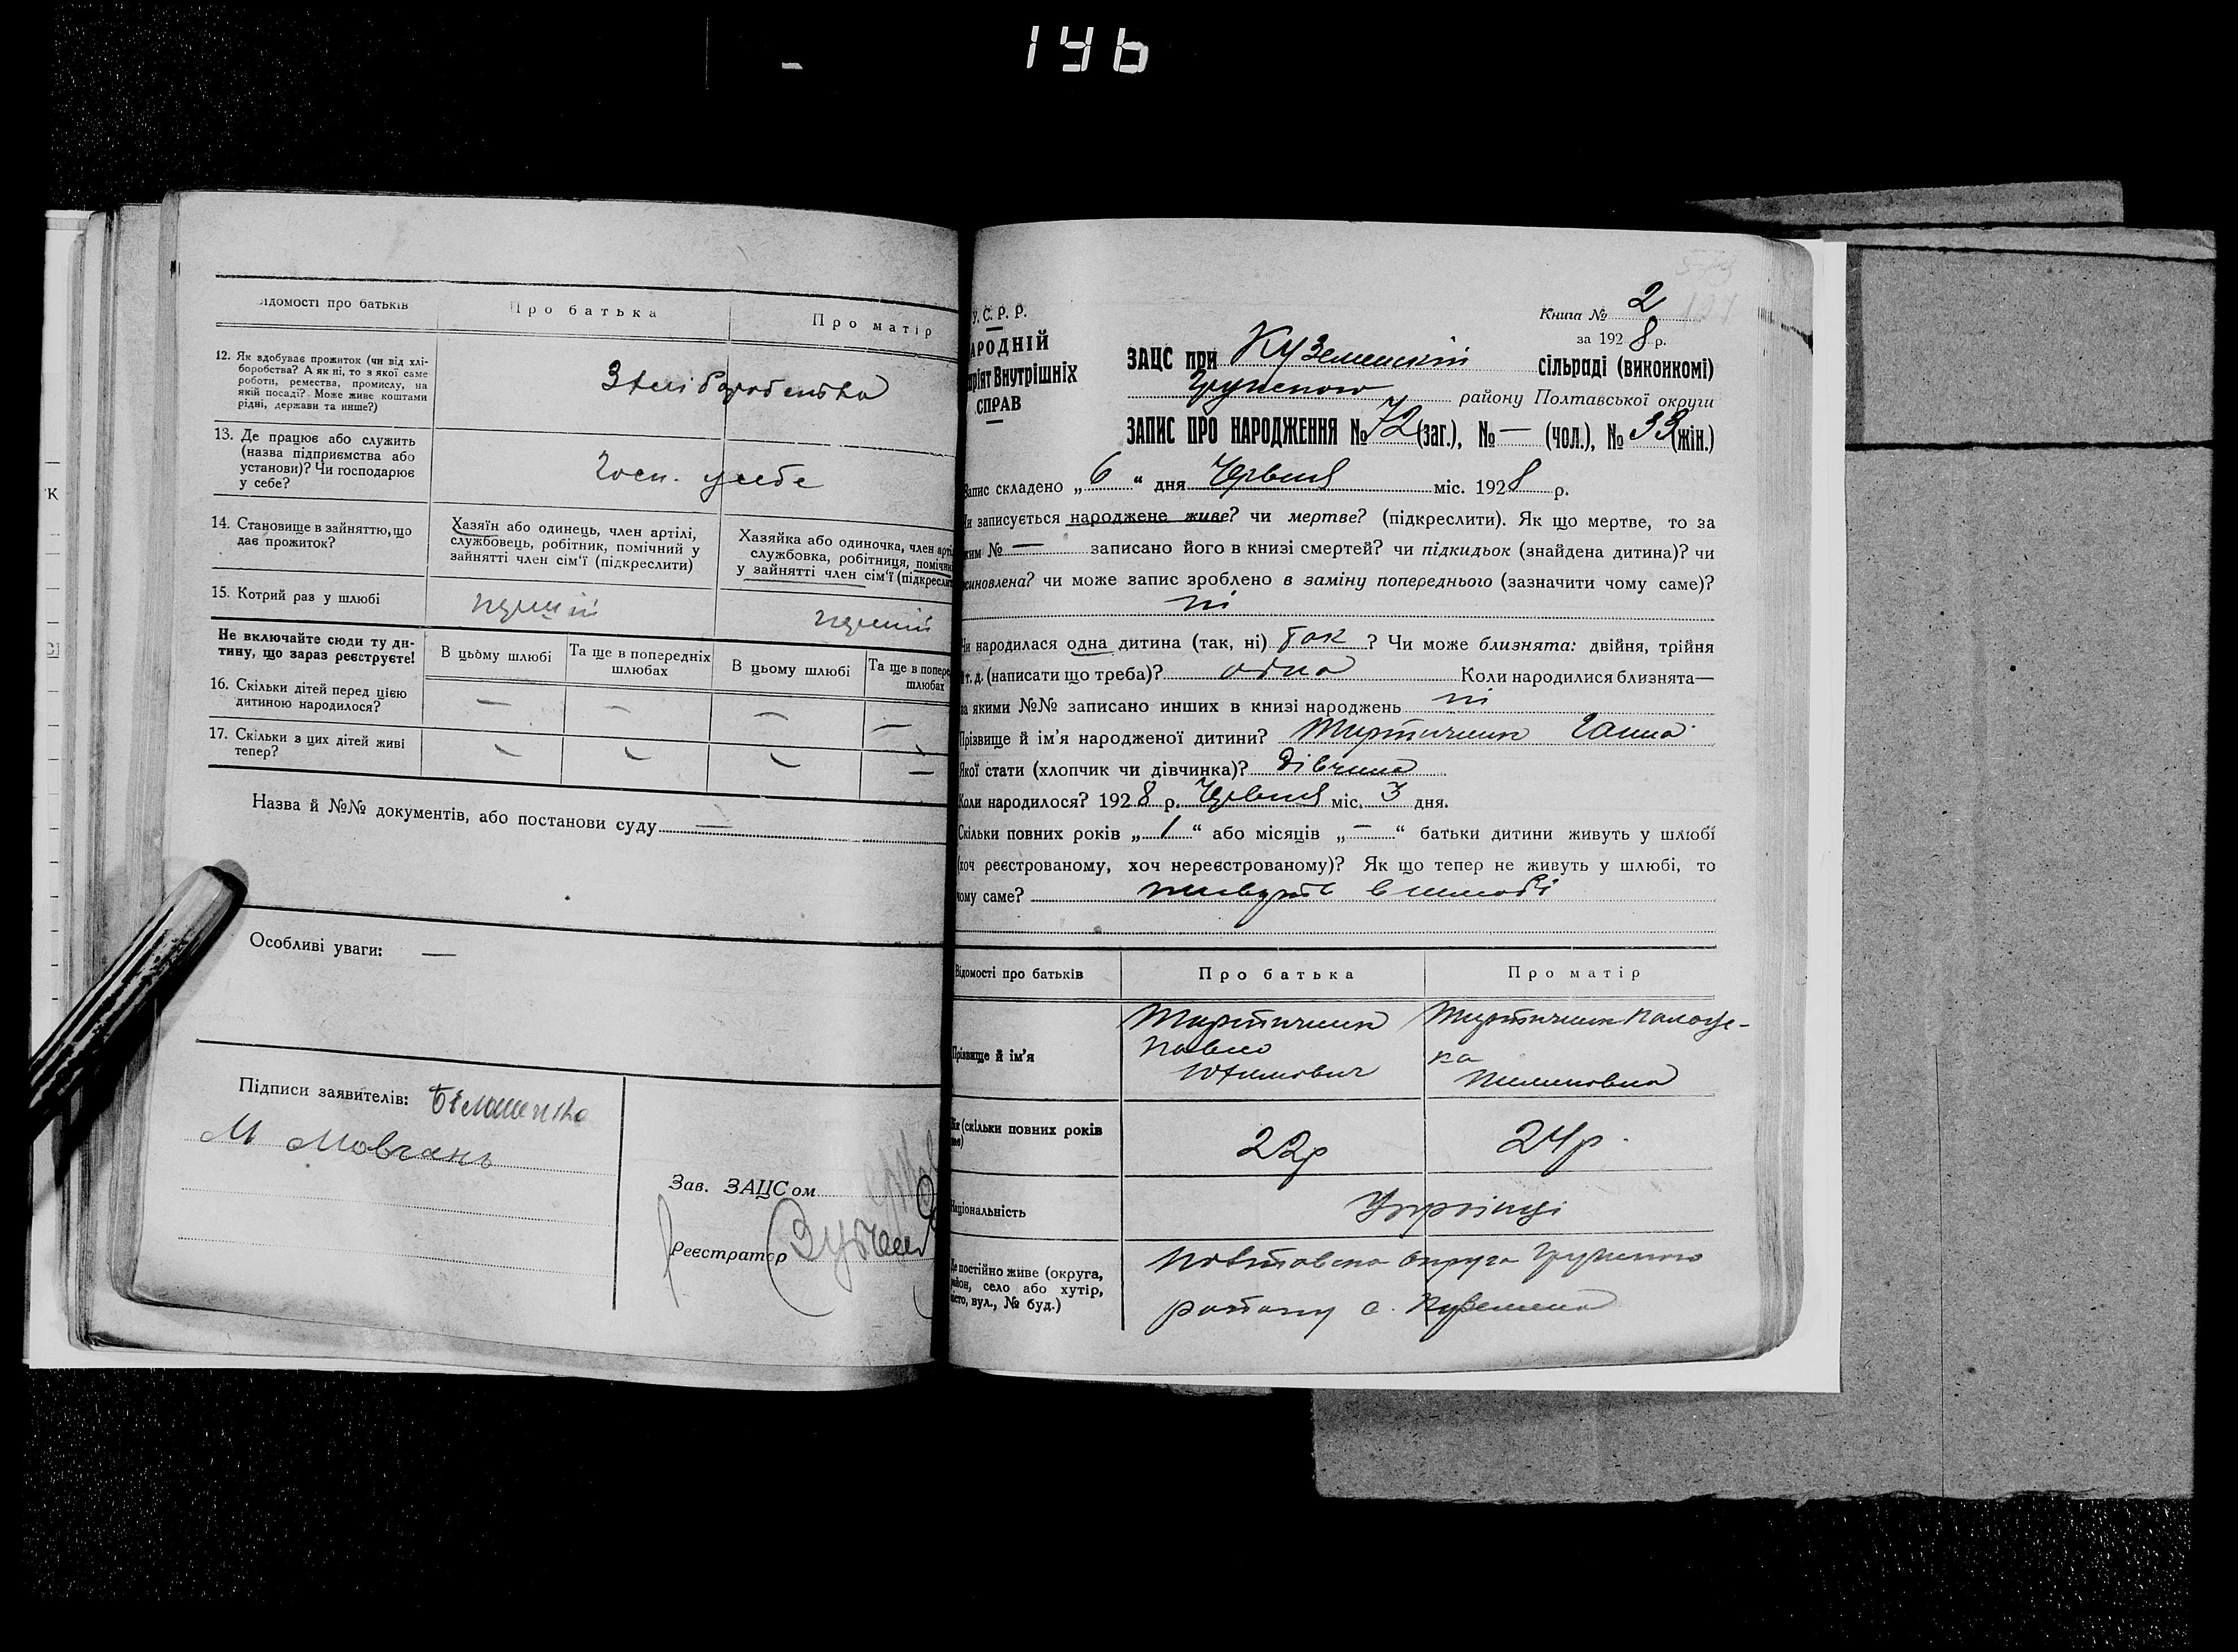 146
Відомості про батьків
Про батька
Про матір
12. Як здобуває прожиток (чи від хлі-
боробства? А як ні, то з якої саме
роботи, ремества, промислу, на
якій посаді? Може живе коштами
рідні, держави та инше?)
З хліборобства
13. Де працює або служить
(назва підприємства або
установи)? Чи господарює
у себе?
Госп. у себе
14. Становище в зайняттю, що
дає прожиток?
Хазяїн або одинець, член артілі,
службовець, робітник, помічний у
зайнятті член сім'ї (підкреслити)
Хазяйка або одиночка, член арті
службовка, робітниця, помічн
у зайнятті член сім'ї (підкресли
15. Котрий раз у шлюбі
перший
перший
Не включайте сюди ту ди-
тину, що зараз реєструєте!
В цьому шлюбі
Та ще в попередніх
шлюбах
В цьому шлюбі
Та ще в попере
шлюбах
16. Скільки дітей перед цією
дитиною народилося?
— — — —
17. Скільки з цих дітей живі
тепер?
— — — —
Назва й №№ документів, або постанови суду —
Особливі уваги: —
Підписи заявителів:
М Мовчань
Зав. ЗАЦСом
Реєстратор
У.С.Р.Р.
АРОДНІЙ
ріят Внутрішніх
СПРАВ
Книга № 2
за 1928 р.
ЗАЦС при Куземенскій сільраді (виконкомі)
Грунского району Полтавської округи
ЗАПИС ПРО НАРОДЖЕННЯ № 72 (заг.), № — (чол.), № 33 (жін.)
Запис складено „6“ дня Червня міс. 1928 р.
Чи записується народжене живе? чи мертве? (підкреслити). Як що мертве, то за
яким № — записано його в книзі смертей? чи підкидьок (знайдена дитина)? чи
усиновлена? чи може запис зроблено в заміну попереднього (зазначити чому саме)?
ні
Чи народилася одна дитина (так, ні) так ? Чи може близнята: двійня, трійня
й т. д. (написати що треба)? одна Коли народилися близнята—
за якими №№ записано инших в книзі народжень ні
Прізвище й ім'я народженої дитини? Ганна
Якої стати (хлопчик чи дівчинка)? дівчина
Коли народилося? 1928 р. Червня міс. 3 дня.
Скільки повних років „1“ або місяців „—“ батьки дитини живуть у шлюбі
(хоч реєстрованому, хоч нереєстрованому)? Як що тепер не живуть у шлюбі, то
чому саме? живуть в шлюбі
Відомості про батьків
Про батька
Про матір
Прізвище й ім'я
Павло
Юхимович
Пилиповна
Вік (скільки повних років
22р
24р.
Національність
Українці
Де постійно живе (округа,
район, село або хутір,
місто, вул., № буд.)
Полтавска округа Грунского
району с. Куземена